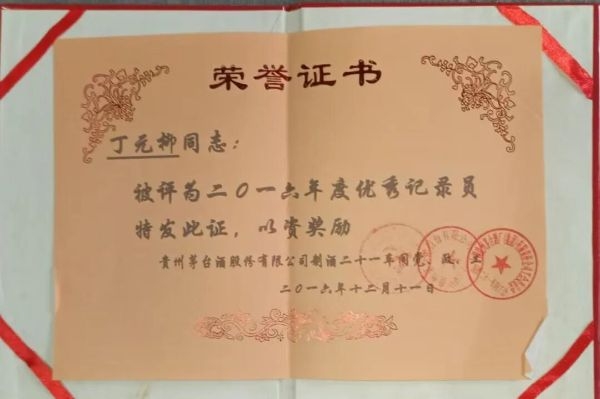 荣誉证书
丁元柳同志：
被评为二〇一六年度优秀记录员
特发此证，以资奖励
贵州茅台酒股份有限公司制酒二十一车间党、政、工
二〇一六年十二月十一日